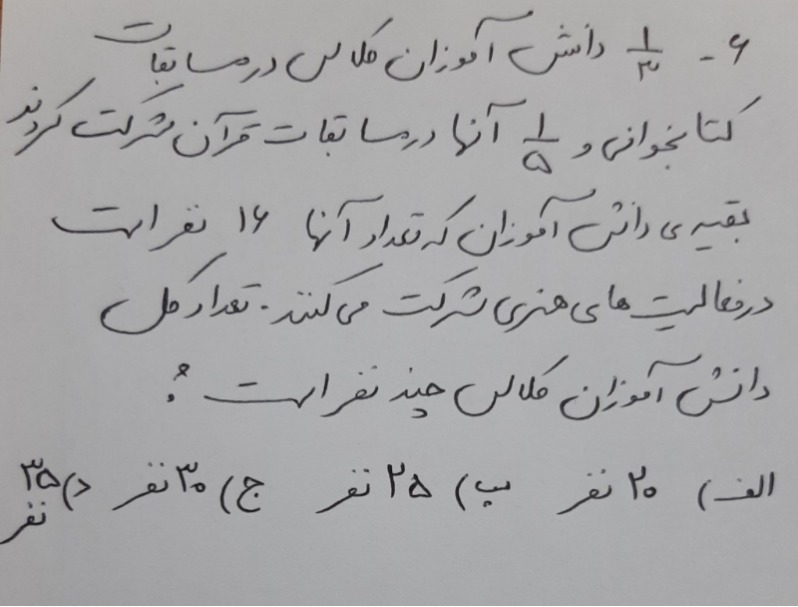 ۶- ۱/۳ دانش آموزان کلاس در مسابقات
کتابخوانی و ۱/۵ آنها در مسابقات قرآن شرکت کردند
بقیه ی دانش آموزان که تعداد آنها ۱۶ نفر است
در فعالیت های هنری شرکت می کنند. تعداد کل
دانش آموزان کلاس چند نفر است ؟
الف) ۲۰ نفر ب) ۲۵ نفر ج) ۳۰ نفر د) ۳۵ نفر